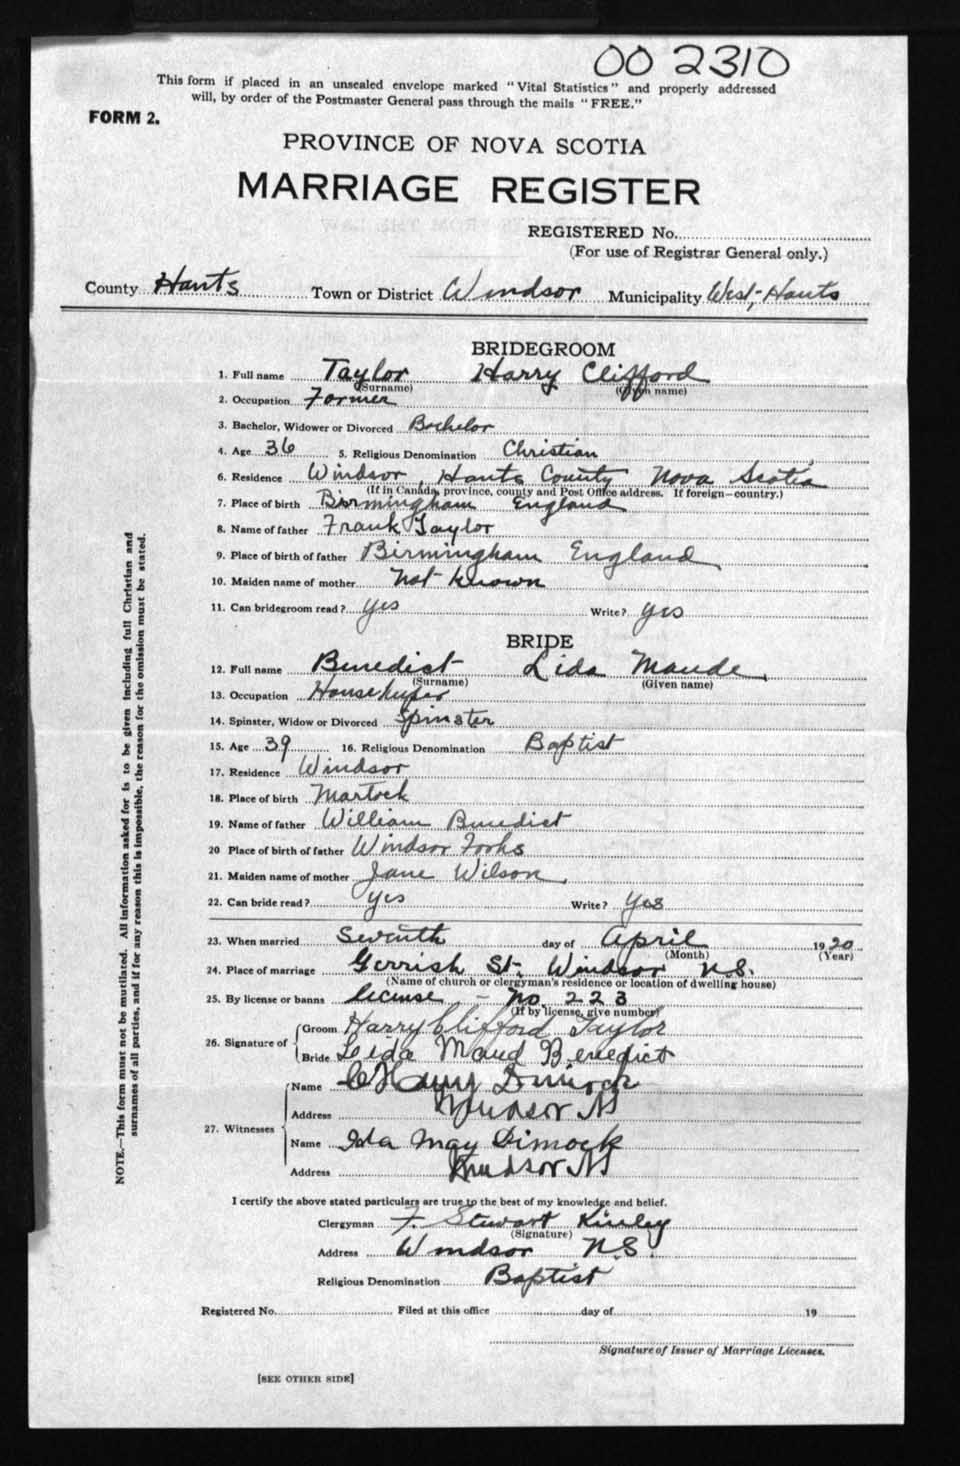 002310
This form if placed in an unsealed envelope marked "Vital Statistics" and properly addressed
will, by order of the Postmaster General pass through the mails "FREE."
FORM 2.
PROVINCE OF NOVA SCOTIA
MARRIAGE REGISTER
REGISTERED No.
(For use of Registrar General only.)
County Hants Town or District Windsor Municipality West, Hants
BRIDEGROOM
1. Full name Taylor Harry Clifford
(Surname) (Given name)
2. Occupation Farmer
3. Bachelor, Widower or Divorced Bachelor
4. Age 36 5. Religious Denomination Christian
6. Residence Windsor, Hants County Nova Scotia
(If in Canada, province, county and Post Office address. If foreign—country.)
7. Place of birth Birmingham England
8. Name of father Frank Taylor
9. Place of birth of father Birmingham England
10. Maiden name of mother not known
11. Can bridegroom read? yes Write? yes
BRIDE
12. Full name Benedict Lida Maude
(Surname) (Given name)
13. Occupation Housekeeper
14. Spinster, Widow or Divorced Spinster
15. Age 39 16. Religious Denomination Baptist
17. Residence Windsor
18. Place of birth Martock
19. Name of father William Benedict
20 Place of birth of father Windsor Forks
21. Maiden name of mother Jane Wilson
22. Can bride read? yes Write? yes
23. When married Seventh day of April 1920
(Month) (Year)
24. Place of marriage Gerrish St. Windsor N.S.
(Name of church or clergyman's residence or location of dwelling house)
25. By license or banns license - No. 223
(If by license, give number)
26. Signature of Groom Harry Clifford Taylor
Bride Leida Maud Benedict
27. Witnesses Name Harry Dimock
Address Windsor NS
Name Ida May Dimock
Address Windsor NS
I certify the above stated particulars are true to the best of my knowledge and belief.
Clergyman F. Stewart Kinley
(Signature)
Address Windsor N.S.
Religious Denomination Baptist
Registered No. Filed at this office day of 19
Signature of Issuer of Marriage Licenses.
[SEE OTHER SIDE]
NOTE.—This form must not be mutilated. All information asked for is to be given including full Christian and
surnames of all parties, and if for any reason this is impossible, the reason for the omission must be stated.